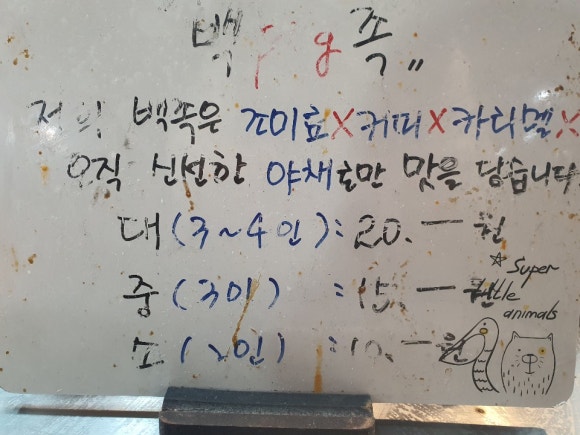 백 족,,
저희 백족은 조미료X커피X카라멜X
오직 신선한 야채로만 맛을 담습니다
대 (3~4인) : 20.一원
중 (3인) : 15.一원
소 (2인) : 10.一원
☆ Super
little
animals